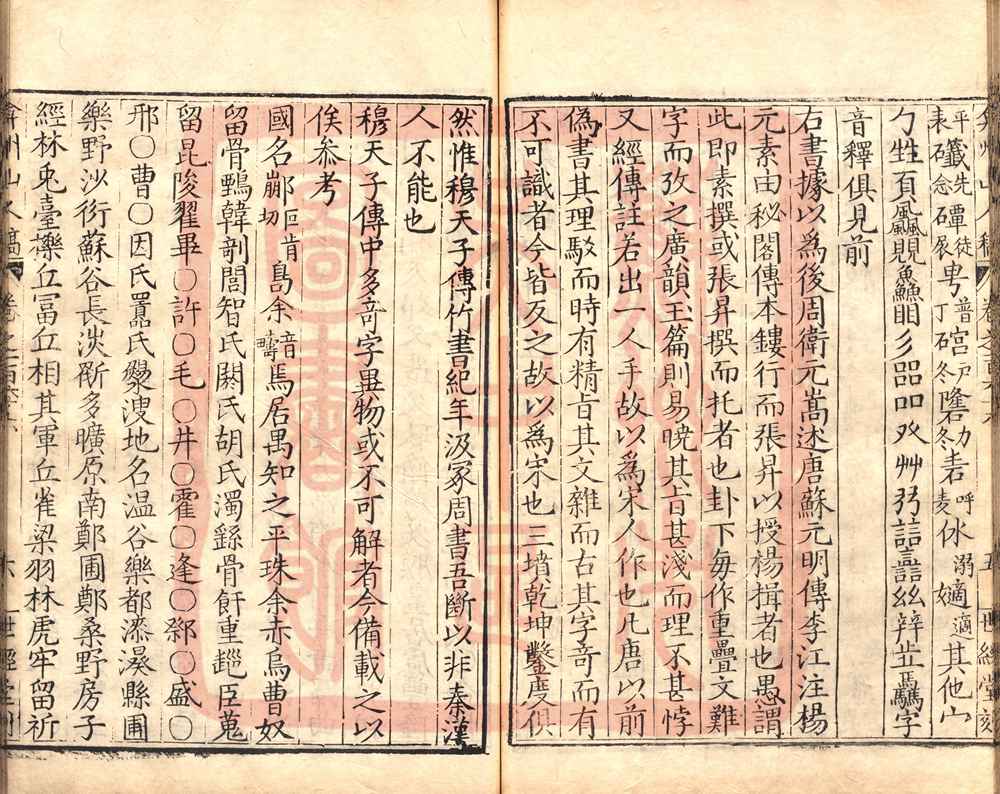 平孅先礹念磹徒展甹普宫冬𥕐力冬硓呼麦㳄溺嫡適其他山
勹甡頁飍覞鱻䀠彡品㗊㸚艸豩誩譶絲辡歮驫字
音釋俱見前
右書據以爲後周衛元嵩述唐蘇元明傳李江注楊
元素由秘閣傳本鏤行而張昇以授楊楫者也愚謂
此即素撰或張昇撰而托者也卦下每作重疊文難
字而攷之廣韻玉篇則易曉其旨甚淺而理不甚悖
又經傳註若出一人手故以爲宋人作也凡唐以前
偽書其理駁而時有精旨其文雜而古其字奇而有
不可識者今皆反之故以爲宋也三墳乾坤鑿度俱
然惟穆天子傳竹書紀年汲冢周書吾斷以非秦漢
人不能也
穆天子傳中多奇字異物或不可解者今備載之以
俟叅考
國名䣙崩切巨肯㠀余𤴁音焉居禺知之平珠余赤烏曹奴
留骨鷝韓剞閭智氏閼氏胡氏濁繇骨飦重䣠臣蒐
留昆㕙翟畢○許○毛○井○霍○逢○鄒○盛○
邢○曹○因氏囂氏㶟溲地名温谷樂都漆㶟縣圃
樂野沙衍蘇谷長淡㪽多曠原南鄭圃鄭桑野房子
經林兎臺櫟丘冨丘相其軍丘雀梁羽林虎牢留祈
弇州山人稿 卷之一百六十六 六 世經堂刻